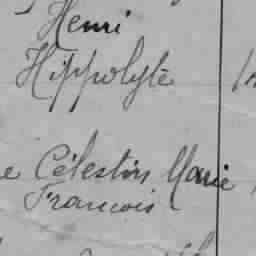 Henri
Hippolyte
e Célestin Marie
Francois